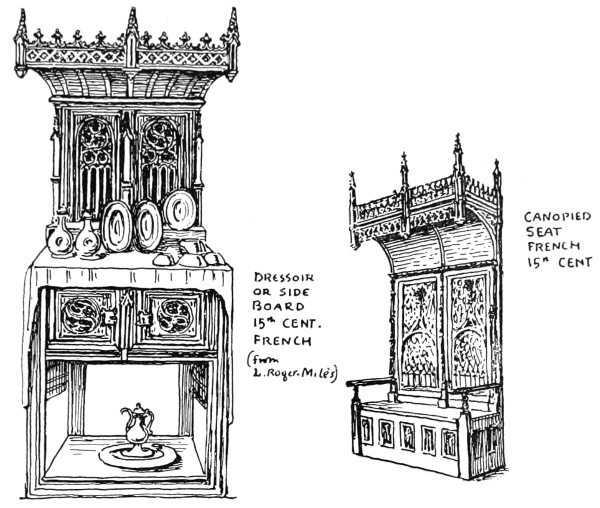 DRESSOIR
OR SIDE
BOARD
15TH CENT.
FRENCH
(from
L. Roger-Milès)
CANOPIED
SEAT
FRENCH
15TH CENT